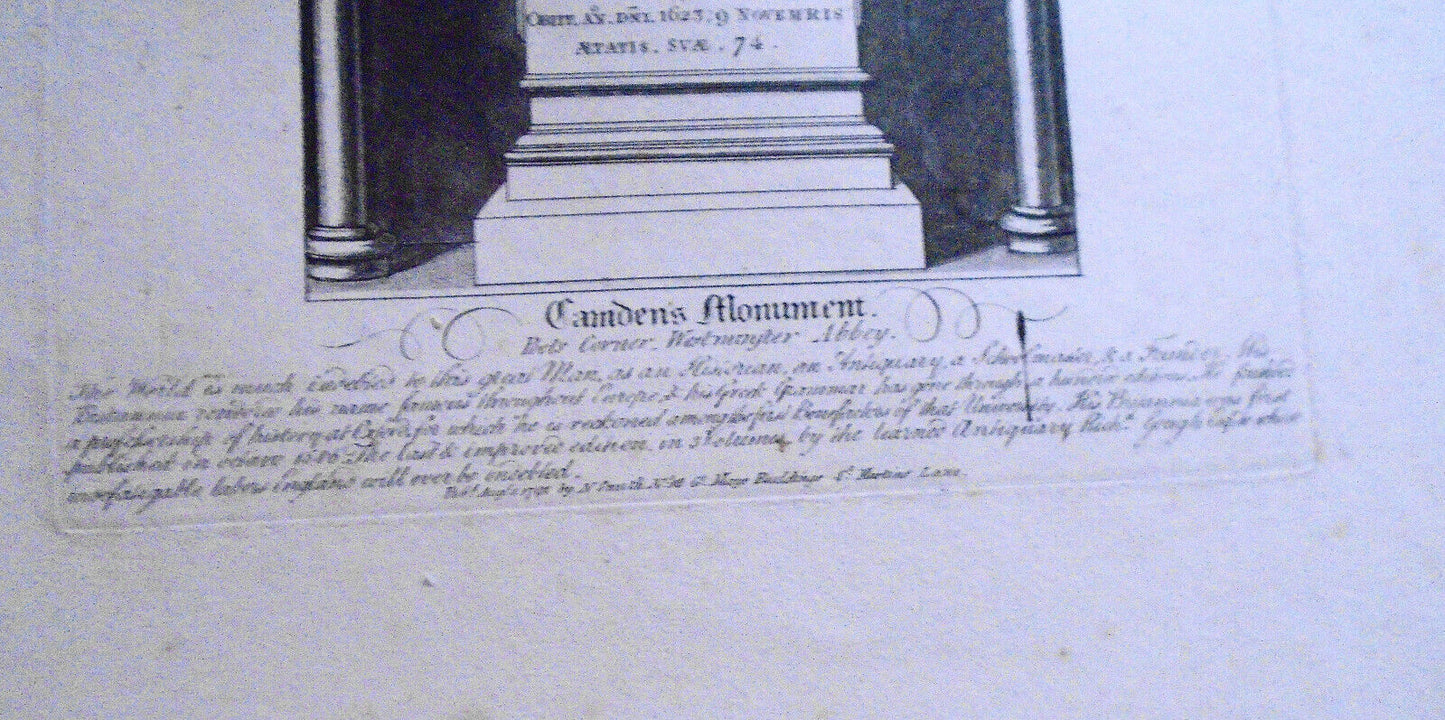 OBIIT. AÑ. DÑI. 1623; 9 NOVEMRIS
ÆTATIS. SVÆ. 74.
Camden's Monument.
Poets Corner, Westminster Abbey.
The World is much indebted to this great Man, as an Historian, an Antiquary, a Schoolmaster, & a Founder. His
Britannia renders his name famous throughout Europe, & his Greek Grammar has gone through a hundred editions. He founded
a professorship of history at Oxford, for which he is reckoned among the first Benefactors of that University. His Britannia was first
published in octavo 1586. The last & improved edition, in 3 Volumes, by the learned Antiquary Richd. Gough Esqr. to whose
indefatigable labors England will ever be indebted.
by N Smith, No. Gt. Mays Buildings St. Martins Lane.